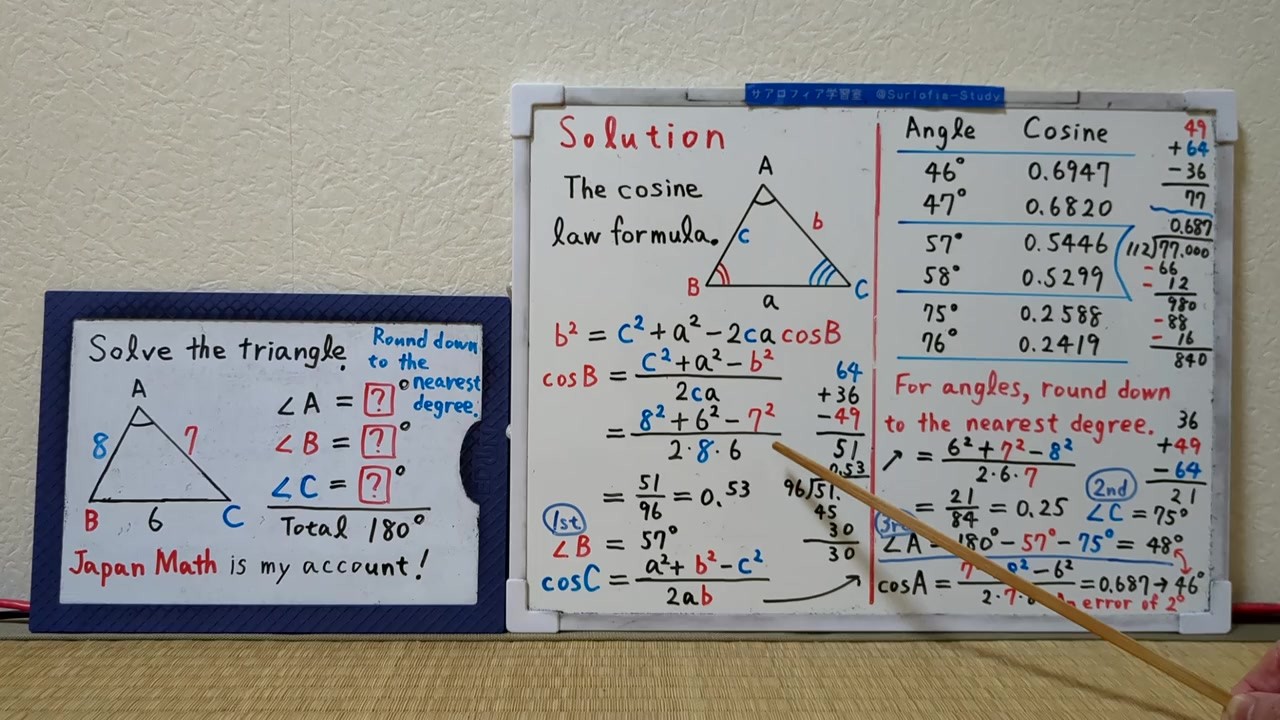 Solve the triangle.
Round down
to the
nearest
degree.
A
8
7
B
6
C
∠A = ?°
∠B = ?°
∠C = ?°
Total 180°
Japan Math is my account!
サアロフィア学習室 @Surlofia-Study
Solution
The cosine
law formula.
A
c
b
B
a
C
b² = c² + a² - 2ca cosB
cosB = c² + a² - b² / 2ca
= 8² + 6² - 7² / 2·8·6
64
+36
-49
51
= 51/96 = 0.53
0.53
96)51.
45
30
30
1st
∠B = 57°
cosC = a² + b² - c² / 2ab
Angle Cosine
46° 0.6947
47° 0.6820
57° 0.5446
58° 0.5299
75° 0.2588
76° 0.2419
49
+64
-36
77
0.687
112)77.000
-66
-12
980
-88
-16
840
For angles, round down
to the nearest degree.
= 6² + 7² - 8² / 2·6·7
36
+49
-64
21
= 21/84 = 0.25
2nd
∠C = 75°
3rd
∠A = 180° - 57° - 75° = 48°
cosA = 7 8² - 6² / 2·7· = 0.687 → 46°
An error of 2°